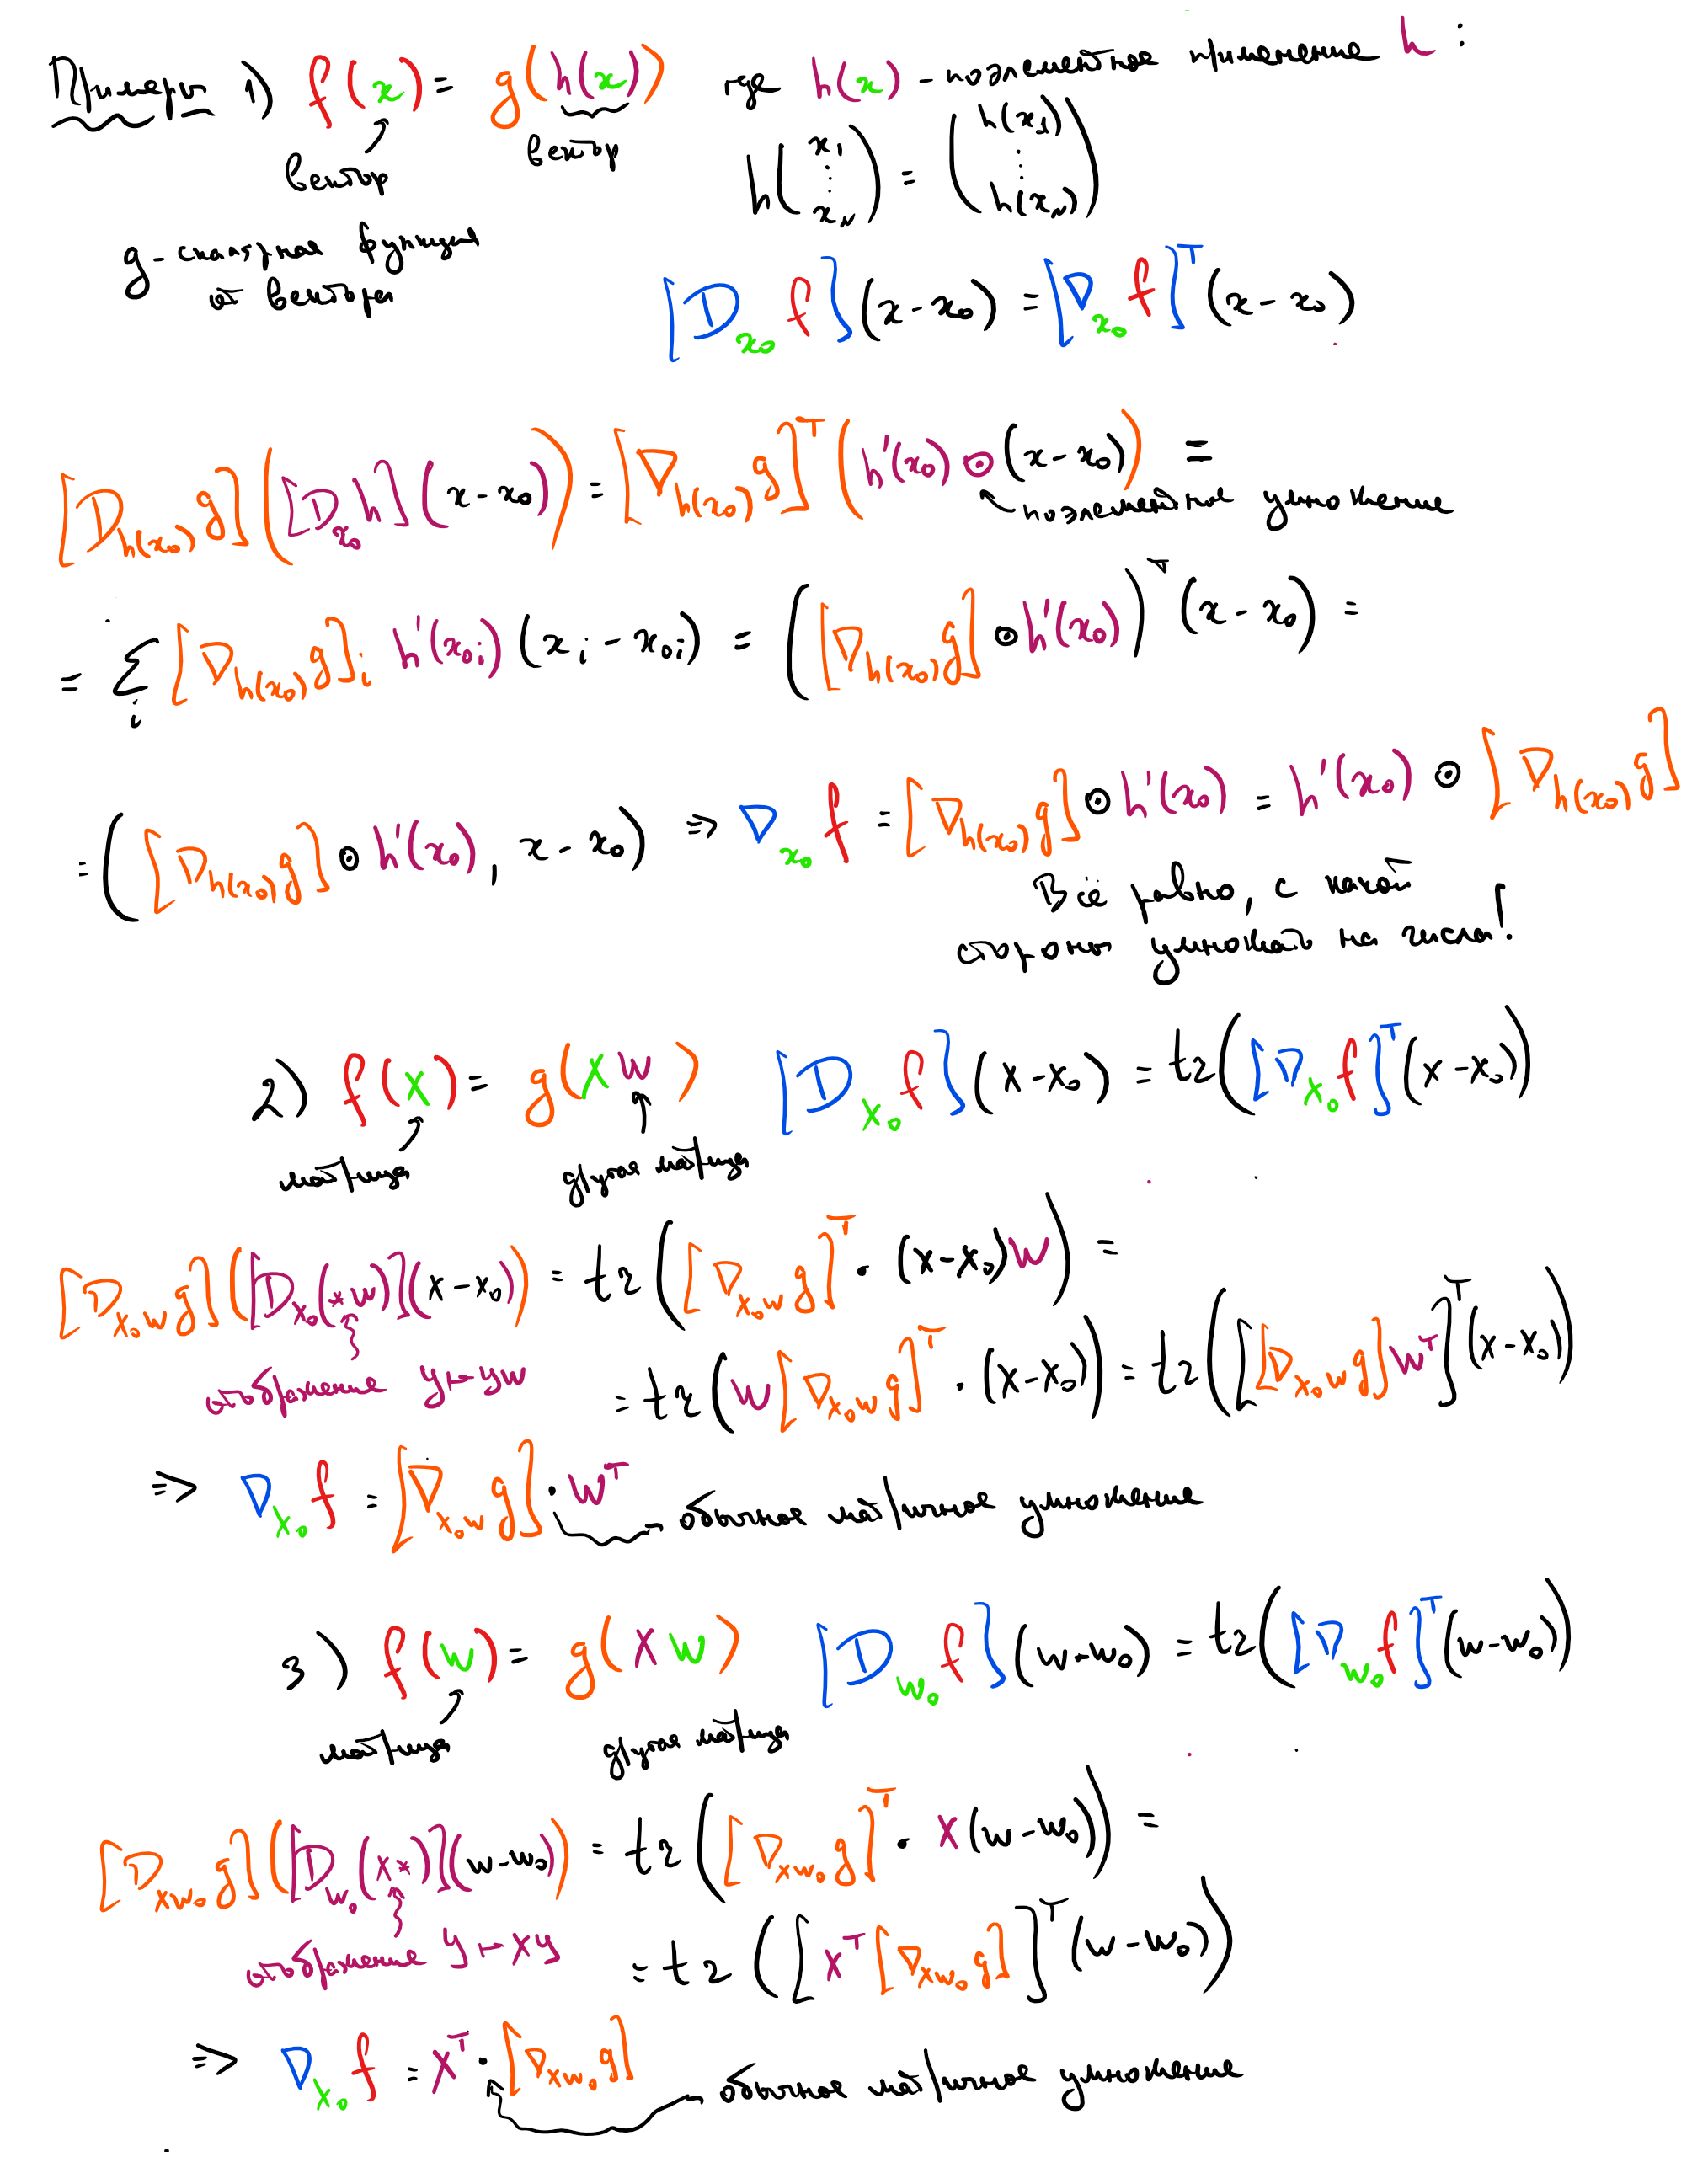 Примеры 1) f(x) = g(h(x)) где h(x) - поэлементное применение h:
вектор вектор h(x₁ ⋮ x_N) = (h(x₁) ⋮ h(x_N))
g - скалярная функция
от вектора
[D_{x₀} f](x - x₀) = [∇_{x₀} f]^T (x - x₀)
[D_{h(x₀)} g]([D_{x₀} h](x - x₀)) = [∇_{h(x₀)} g]^T (h'(x₀) ⊙ (x - x₀)) =
поэлементное умножение
= Σ_i [∇_{h(x₀)} g]_i h'(x_{0i}) (x_i - x_{0i}) = ([∇_{h(x₀)} g] ⊙ h'(x₀))^T (x - x₀) =
= ([∇_{h(x₀)} g] ⊙ h'(x₀), x - x₀) ⇒ ∇_{x₀} f = [∇_{h(x₀)} g] ⊙ h'(x₀) = h'(x₀) ⊙ [∇_{h(x₀)} g]
Всё равно, с какой
стороны умножать на числа!
2) f(X) = g(XW) [D_{X₀} f](X - X₀) = tr([∇_{X₀} f]^T (X - X₀))
матрица другая матрица
[D_{X₀W} g]([D_{X₀}(*W)](X - X₀)) = tr([∇_{X₀W} g]^T · (X - X₀)W) =
отображение Y ↦ YW = tr(W[∇_{X₀W} g]^T · (X - X₀)) = tr([[∇_{X₀W} g]W^T]^T (X - X₀))
⇒ ∇_{X₀} f = [∇_{X₀W} g] · W^T обычное матричное умножение
3) f(W) = g(XW) [D_{W₀} f](W - W₀) = tr([∇_{W₀} f]^T (W - W₀))
матрица другая матрица
[D_{XW₀} g]([D_{W₀}(X*)](W - W₀)) = tr([∇_{XW₀} g]^T · X(W - W₀)) =
отображение Y ↦ XY = tr([X^T [∇_{XW₀} g]]^T (W - W₀))
⇒ ∇_{X₀} f = X^T · [∇_{XW₀} g] обычное матричное умножение